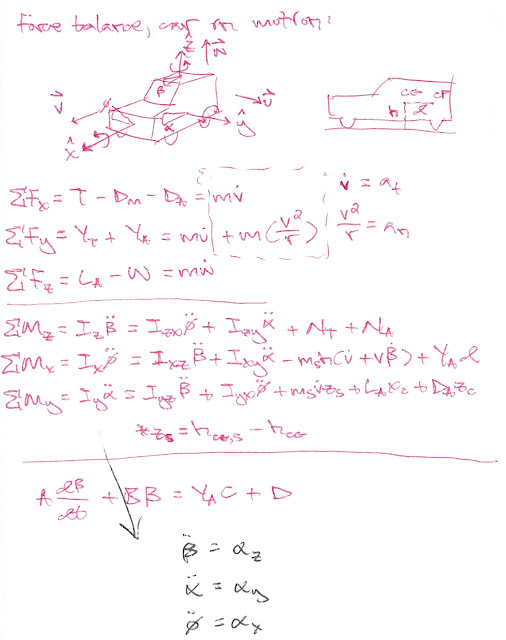 Force balance, car in motion:
ẑ w⃗
β
v⃗ φ
α u⃗
x̂ ŷ
CG CP
h l
ΣFx = T - Dm - DA = mv̇
v̇ = at
ΣFy = YT + YA = mu̇ + m(v²/r)
v²/r = an
ΣFz = LA - W = mẇ
ΣMz = Iz β̈ = Izx φ̈ + Izy α̈ + NT + NA
ΣMx = Ix φ̈ = Ixz β̈ + Ixy α̈ - msh(u̇ + vβ̇) + YA l
ΣMy = Iy α̈ = Iyz β̈ + Iyx φ̈ + ms v̇ zs + LA xc + DA zc
*zs = hCG,s - hCG
A dβ/dt + Bβ = YA C + D
β̈ = αz
α̈ = αy
φ̈ = αx